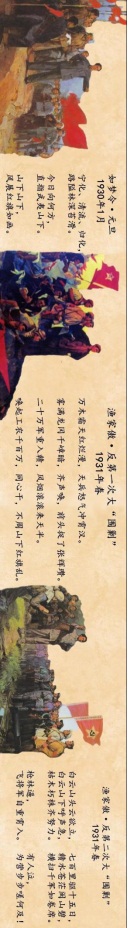 如梦令·元旦
1930年1月
宁化、清流、归化,
路隘林深苔滑。
今日向何方,
直指武夷山下。
山下山下,
风展红旗如画。
渔家傲·反第一次大“围剿”
1931年春
万木霜天红烂漫,天兵怒气冲霄汉。
雾满龙冈千嶂暗,齐声唤,前头捉了张辉瓒。
二十万军重入赣,风烟滚滚来天半。
唤起工农千百万,同心干,不周山下红旗乱。
渔家傲·反第二次大“围剿”
1931年春
白云山头云欲立,七百里驱十五日,
白云山下呼声急,赣水苍茫闽山碧,
枯木朽株齐努力。横扫千军如卷席。
枪林逼,有人泣,
飞将军自重霄入。为营步步嗟何及!